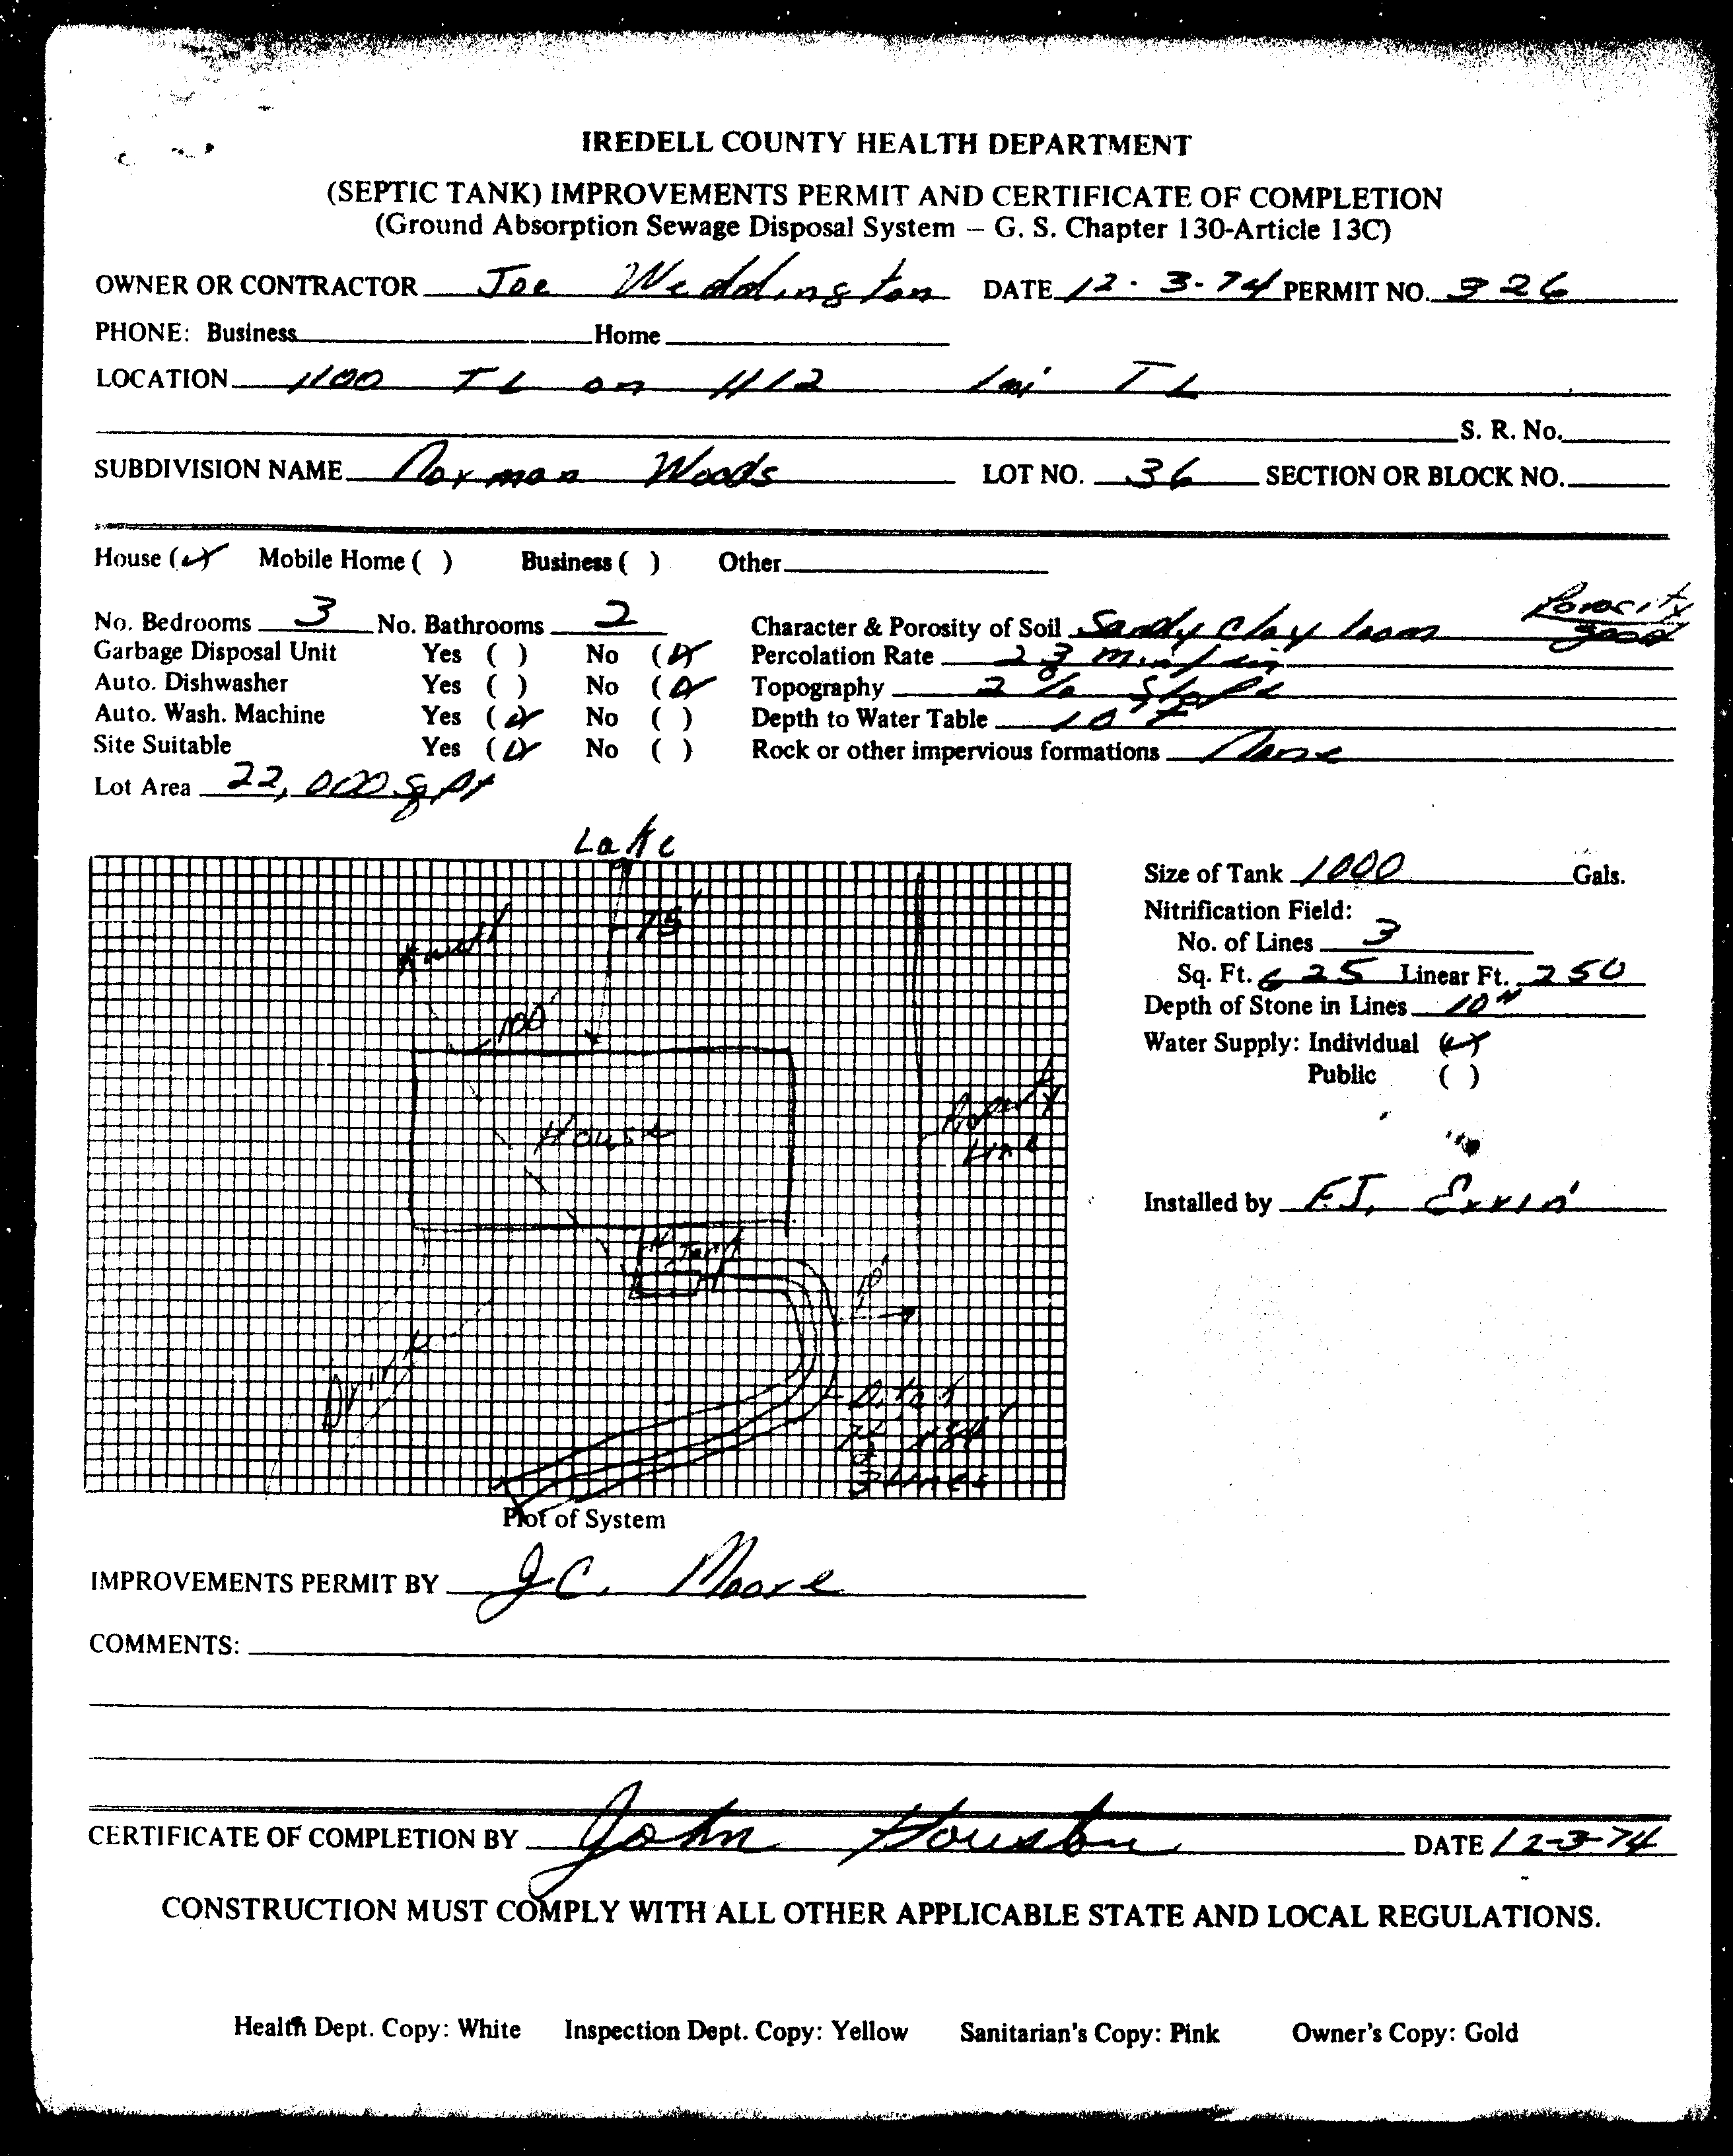 IREDELL COUNTY HEALTH DEPARTMENT
(SEPTIC TANK) IMPROVEMENTS PERMIT AND CERTIFICATE OF COMPLETION
(Ground Absorption Sewage Disposal System – G. S. Chapter 130-Article 13C)
OWNER OR CONTRACTOR Joe Weddington DATE 12-3-74 PERMIT NO. 326
PHONE: Business Home
LOCATION 1100 TL on 1112 1mi TL
S. R. No.
SUBDIVISION NAME Norman Woods LOT NO. 36 SECTION OR BLOCK NO.
House (✓) Mobile Home ( ) Business ( ) Other
Porosity
No. Bedrooms 3 No. Bathrooms 2 Character & Porosity of Soil Sandy Clay loam good
Garbage Disposal Unit Yes ( ) No (✓) Percolation Rate 23 min/in
Auto. Dishwasher Yes ( ) No (✓) Topography 2% Slope
Auto. Wash. Machine Yes (✓) No ( ) Depth to Water Table 10'+
Site Suitable Yes (✓) No ( ) Rock or other impervious formations None
Lot Area 22,000 sq ft
Lake
Size of Tank 1000 Gals.
75'
Nitrification Field:
well
No. of Lines 3
Sq. Ft. 625 Linear Ft. 250
100'
Depth of Stone in Lines 10"
Water Supply: Individual (✓)
Public ( )
House
Property
Line
Installed by F.J. Ervin
Tank
10'
Drive
3 Lines
Plot of System
IMPROVEMENTS PERMIT BY J.C. Moore
COMMENTS:
CERTIFICATE OF COMPLETION BY John Houston DATE 12-3-74
CONSTRUCTION MUST COMPLY WITH ALL OTHER APPLICABLE STATE AND LOCAL REGULATIONS.
Health Dept. Copy: White Inspection Dept. Copy: Yellow Sanitarian's Copy: Pink Owner's Copy: Gold